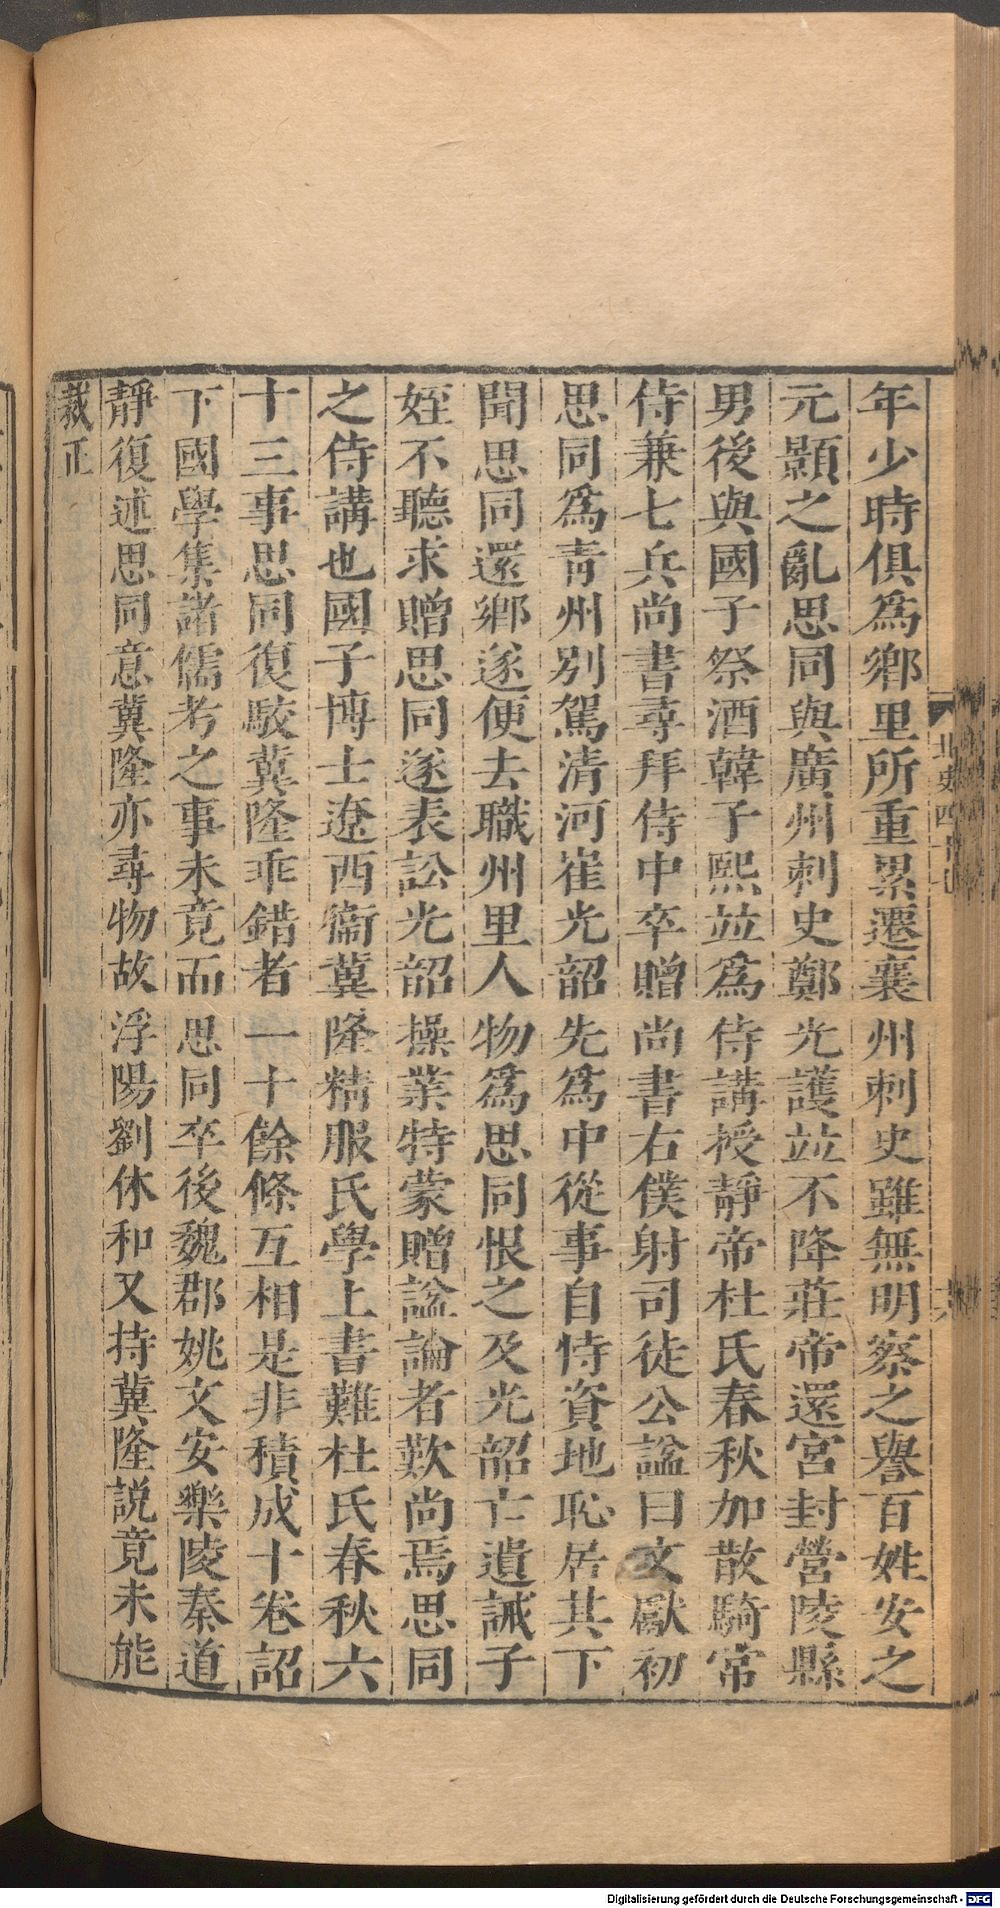 年少時俱爲鄉里所重累遷襄州刺史雖無明察之譽百姓安之
元顥之亂思同與廣州刺史鄭光護竝不降莊帝還宮封營陵縣
男後與國子祭酒韓子熙竝爲侍講授靜帝杜氏春秋加散騎常
侍兼七兵尚書尋拜侍中卒贈尚書右僕射司徒公諡曰文獻初
思同爲靑州別駕清河崔光韶先爲中從事自恃資地恥居其下
聞思同還鄉遂便去職州里人物爲思同恨之及光韶亡遺誡子
姪不聽求贈思同遂表訟光韶操業特蒙贈諡論者歎尚焉思同
之侍講也國子博士遼西衞冀隆精服氏學上書難杜氏春秋六
十三事思同復駮冀隆乖錯者一十餘條互相是非積成十卷詔
下國學集諸儒考之事未竟而思同卒後魏郡姚文安樂陵秦道
靜復述思同意冀隆亦尋物故浮陽劉休和又持冀隆説竟未能
裁正
北史四十
Digitalisierung gefördert durch die Deutsche Forschungsgemeinschaft - DFG